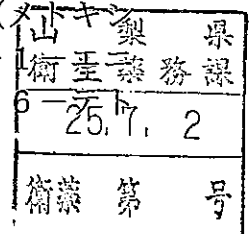 (メトキシ
山梨県
衛生薬務課
6－テト
25.7.2
衛薬 第 号